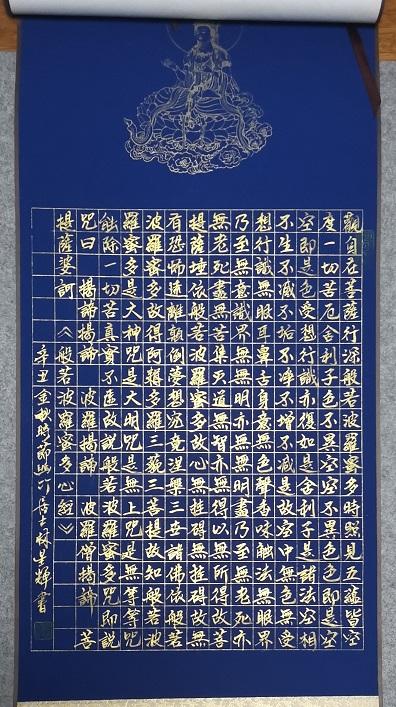 觀自在菩薩行深般若波羅蜜多時照見五蘊皆空
度一切苦厄舍利子色不異空空不異色色即是空
空即是色受想行識亦復如是舍利子是諸法空相
不生不滅不垢不淨不增不減是故空中無色無受
想行識無眼耳鼻舌身意無色聲香味觸法無眼界
乃至無意識界無無明亦無無明盡乃至無老死亦
無老死盡無苦集滅道無智亦無得以無所得故菩
提薩埵依般若波羅蜜多故心無罣礙無罣礙故無
有恐怖遠離顛倒夢想究竟涅槃三世諸佛依般若
波羅蜜多故得阿耨多羅三藐三菩提故知般若波
羅蜜多是大神咒是大明咒是無上咒是無等等咒
能除一切苦真實不虛故說般若波羅蜜多咒即說
咒曰 揭諦揭諦 波羅揭諦 波羅僧揭諦 菩
提薩婆訶 《般若波羅蜜多心經》
辛丑金秋時節 居士林 輝書